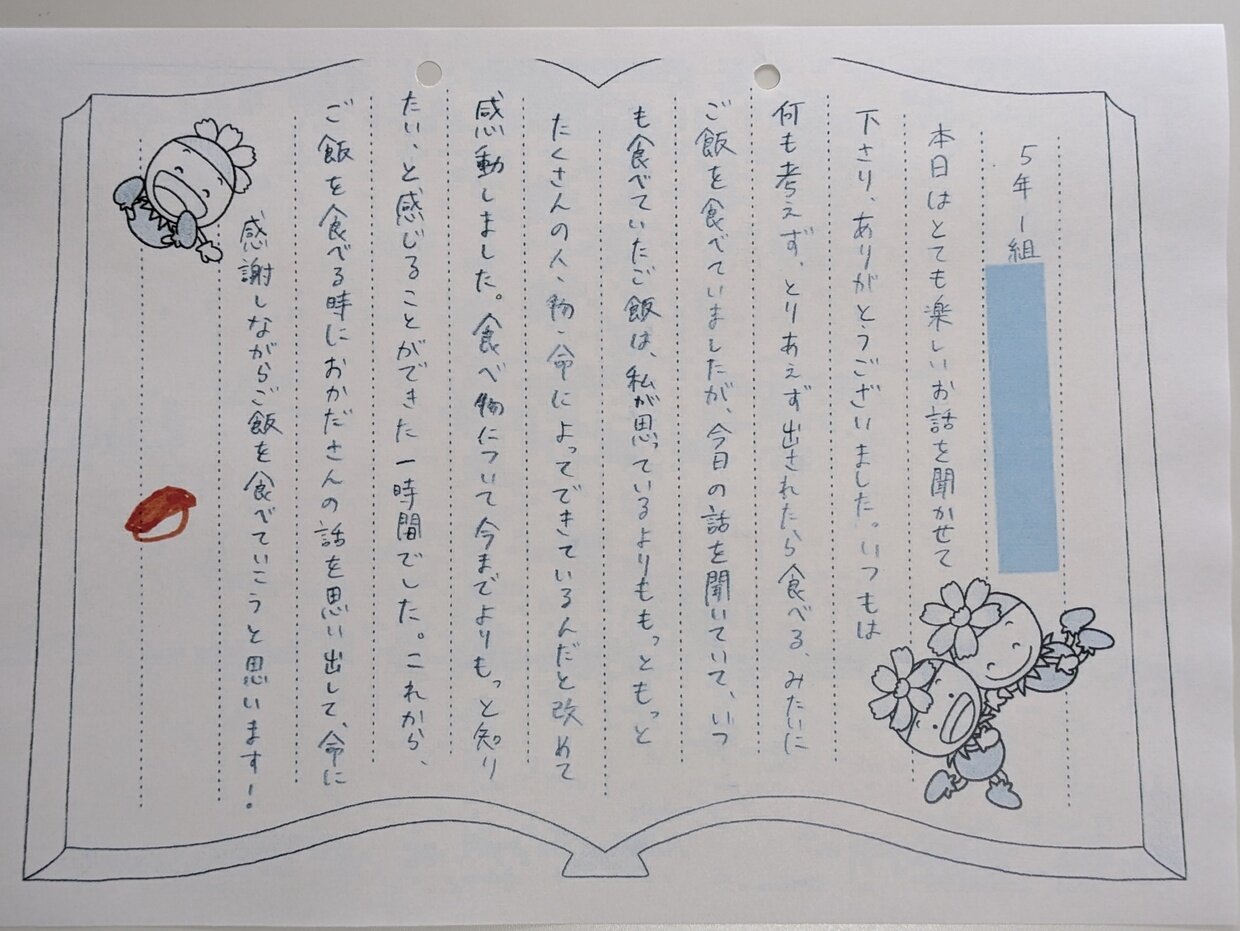 5年1組
本日はとても楽しいお話を聞かせて
下さり、ありがとうございました。いつもは
何も考えず、とりあえず出されたら食べる、みたいに
ご飯を食べていましたが、今日の話を聞いていて、いつ
も食べていたご飯は、私が思っているよりももっともっと
たくさんの人、物、命によってできているんだと改めて
感動しました。食べ物について今までよりもっと知り
たい、と感じることができた一時間でした。これから、
ご飯を食べる時におかださんの話を思い出して、命に
感謝しながらご飯を食べていこうと思います!